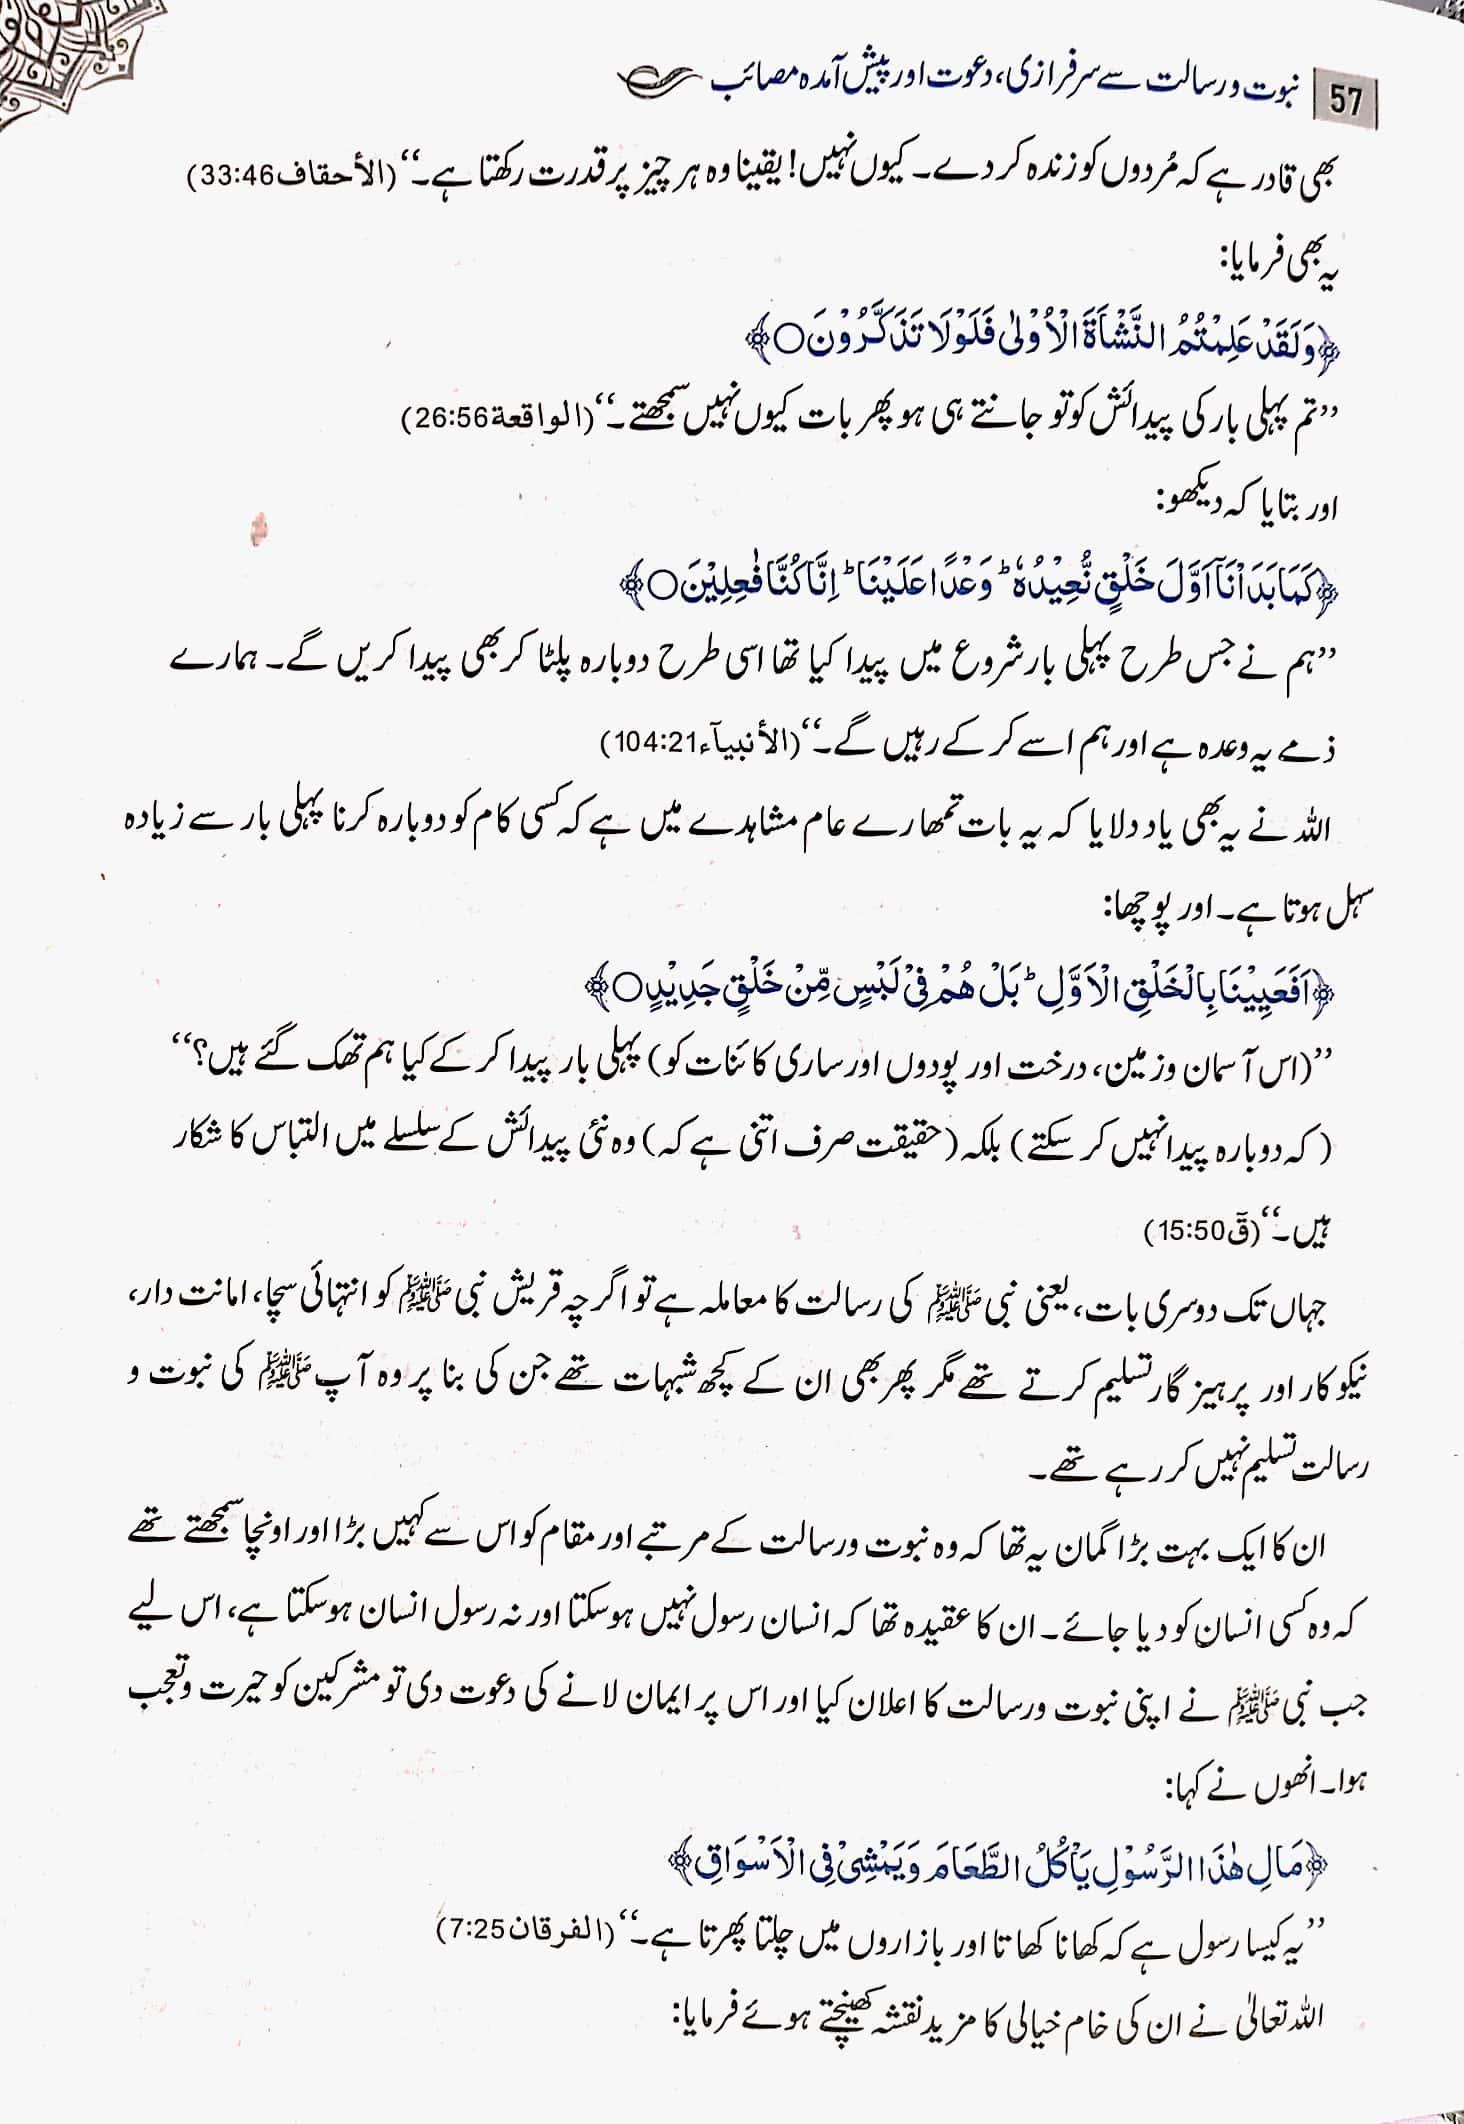 57 نبوت و رسالت سے سرفرازی، دعوت اور پیش آمدہ مصائب
بھی قادر ہے کہ مُردوں کو زندہ کر دے۔ کیوں نہیں! یقینا وہ ہر چیز پر قدرت رکھتا ہے۔‘‘ (الأحقاف 33:46)
یہ بھی فرمایا:
﴿وَلَقَدْ عَلِمْتُمُ النَّشْاَةَ الْاُوْلٰی فَلَوْلَا تَذَكَّرُوْنَ○﴾
’’تم پہلی بار کی پیدائش کو تو جانتے ہی ہو پھر بات کیوں نہیں سمجھتے۔‘‘ (الواقعة 26:56)
اور بتایا کہ دیکھو:
﴿كَمَا بَدَاْنَاۤ اَوَّلَ خَلْقٍ نُّعِیْدُهٗ ؕ وَعْدًا عَلَیْنَا ؕ اِنَّا كُنَّا فٰعِلِیْنَ○﴾
’’ہم نے جس طرح پہلی بار شروع میں پیدا کیا تھا اسی طرح دوبارہ پلٹا کر بھی پیدا کریں گے۔ ہمارے
ذمے یہ وعدہ ہے اور ہم اسے کر کے رہیں گے۔‘‘ (الأنبیآء 104:21)
اللہ نے یہ بھی یاد دلایا کہ یہ بات تمھارے عام مشاہدے میں ہے کہ کسی کام کو دوبارہ کرنا پہلی بار سے زیادہ
سہل ہوتا ہے۔ اور پوچھا:
﴿اَفَعَیِیْنَا بِالْخَلْقِ الْاَوَّلِ ؕ بَلْ هُمْ فِیْ لَبْسٍ مِّنْ خَلْقٍ جَدِیْدٍ○﴾
’’(اس آسمان و زمین، درخت اور پودوں اور ساری کائنات کو) پہلی بار پیدا کر کے کیا ہم تھک گئے ہیں؟‘‘
(کہ دوبارہ پیدا نہیں کر سکتے) بلکہ (حقیقت صرف اتنی ہے کہ) وہ نئی پیدائش کے سلسلے میں التباس کا شکار
ہیں۔‘‘ (قٓ 15:50)
جہاں تک دوسری بات، یعنی نبی ﷺ کی رسالت کا معاملہ ہے تو اگرچہ قریش نبی ﷺ کو انتہائی سچا، امانت دار،
نیکو کار اور پرہیز گار تسلیم کرتے تھے مگر پھر بھی ان کے کچھ شبہات تھے جن کی بنا پر وہ آپ ﷺ کی نبوت و
رسالت تسلیم نہیں کر رہے تھے۔
ان کا ایک بہت بڑا گمان یہ تھا کہ وہ نبوت و رسالت کے مرتبے اور مقام کو اس سے کہیں بڑا اور اونچا سمجھتے تھے
کہ وہ کسی انسان کو دیا جائے۔ ان کا عقیدہ تھا کہ انسان رسول نہیں ہو سکتا اور نہ رسول انسان ہو سکتا ہے، اس لیے
جب نبی ﷺ نے اپنی نبوت و رسالت کا اعلان کیا اور اس پر ایمان لانے کی دعوت دی تو مشرکین کو حیرت و تعجب
ہوا۔ انھوں نے کہا:
﴿مَالِ هٰذَا الرَّسُوْلِ یَاْكُلُ الطَّعَامَ وَیَمْشِیْ فِی الْاَسْوَاقِ﴾
’’یہ کیسا رسول ہے کہ کھانا کھاتا اور بازاروں میں چلتا پھرتا ہے۔‘‘ (الفرقان 7:25)
اللہ تعالیٰ نے ان کی خام خیالی کا مزید نقشہ کھینچتے ہوئے فرمایا: